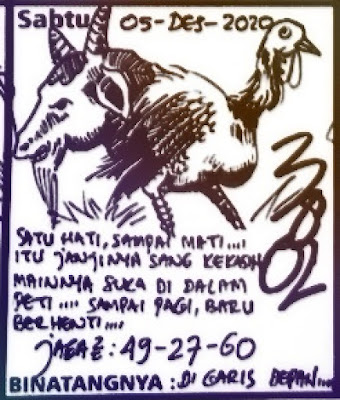 Sabtu 05-DES-2020
3802
SATU HATI, SAMPAI MATI....
ITU JANJINYA SANG KEKASIH
MAINNYA SUKA DI DALAM
PETI .... SAMPAI PAGI, BARU
BERHENTI....
JAGA2 : 49-27-60
BINATANGNYA : DI GARIS DEPAN....